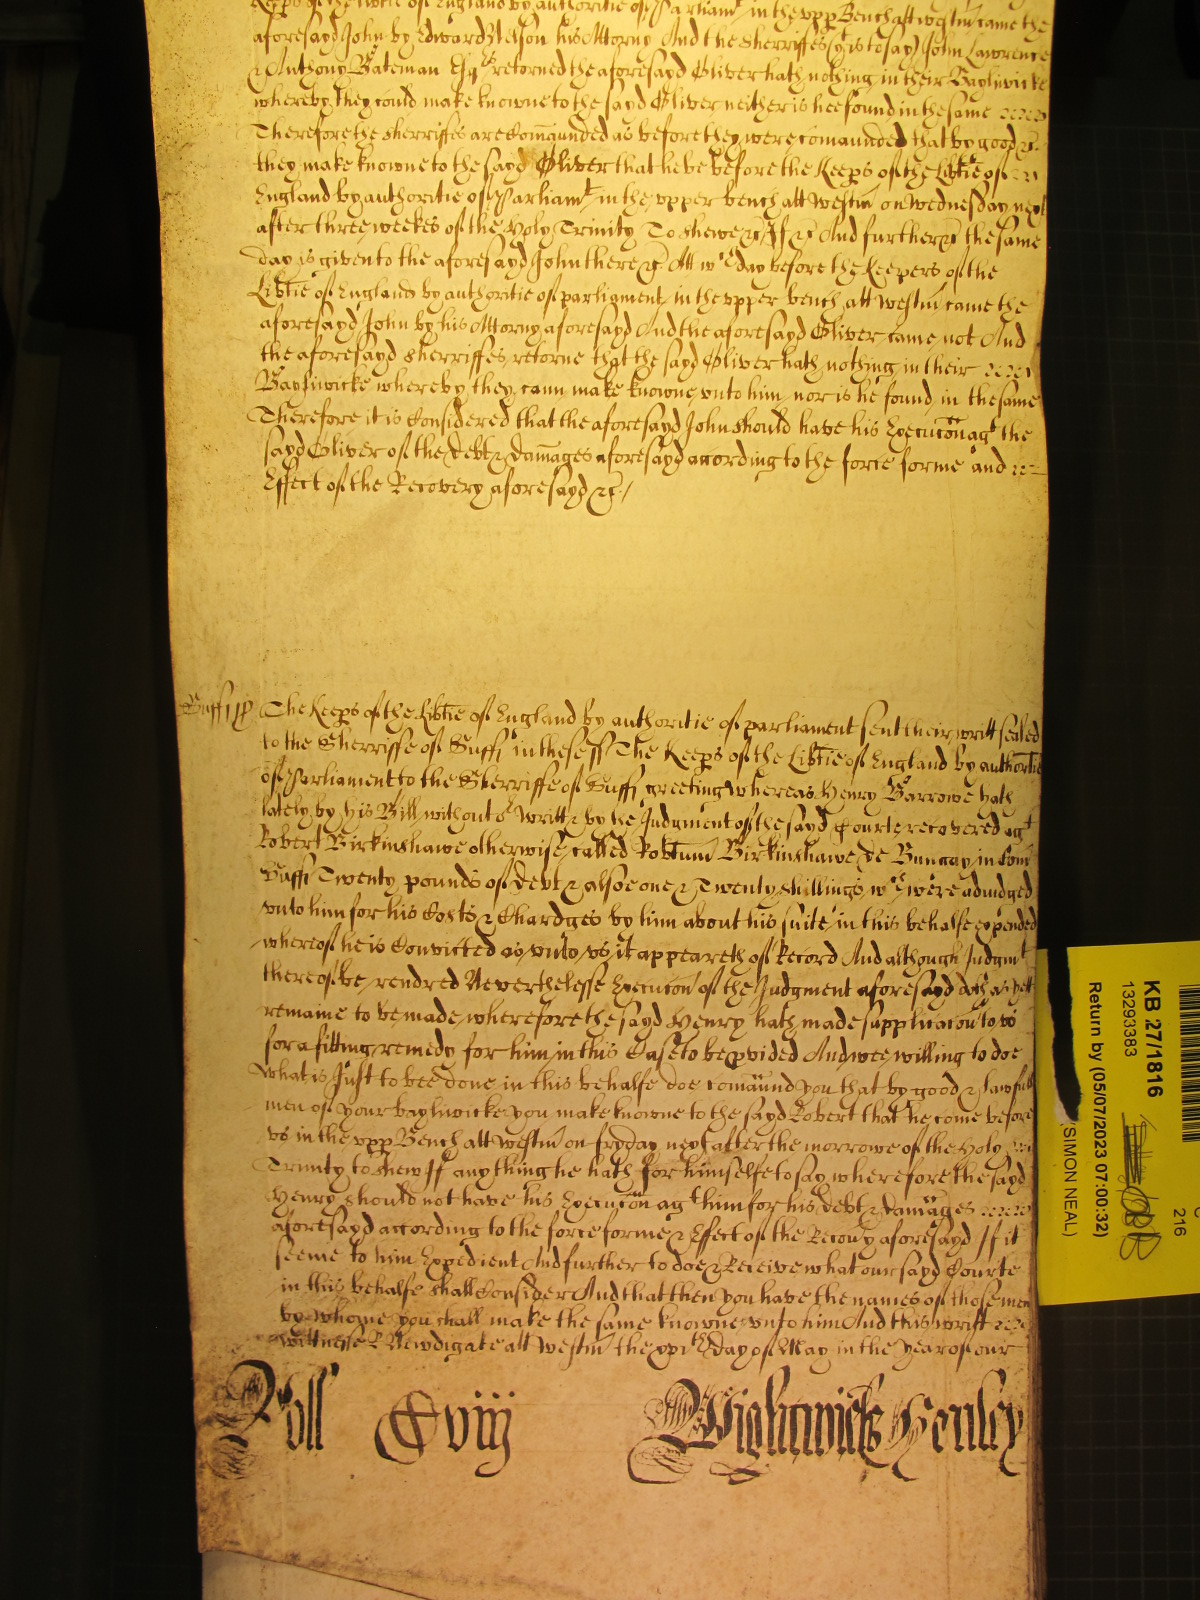 Keeps of the Libtie of England by authoritie of Parliamt in the upp Bench att westm came the
aforesayd John by Edward Nelson his Attorny And the Sherriffes (yt is to say) John Lawrence
& Anthony Bateman Esqrs returned the aforesayd Oliver hath nothing in their Bayliwicke
whereby they could make knowne to the sayd Oliver neither is hee found in the same
Therefore the sherriffes are Comaunded as before they were comaunded that by good &c
they make knowne to the sayd Oliver that he be before the Keeps of the Libtie of
England by authoritie of Parliamt in the upper bench att Westm on Wednesday next
after three weekes of the Holy Trinity To shewe &c If &c And further &c the same
day is given to the aforesayd John there &c Att wch day before the Keepers of the
Libtie of England by authoritie of parliament in the upper bench att Westm came the
aforesayd John by his Attorny aforesayd And the aforesayd Oliver came not And
the aforesayd sherriffes retorne that the sayd Oliver hath nothing in their
Bayliwicke whereby they cann make knowne unto him nor is he found in the same
Therefore it is Considered that the aforesayd John should have his Execucon agt the
sayd Oliver of the Debt & Damages aforesayd according to the force forme and
Effect of the Recovery aforesayd &c /
Suff ss The Keeps of the Libtie of England by authoritie of parliament sent their writt sealed
to the Sherriffe of Suff in these ss The Keeps of the Libtie of England by authoritie
of Parliament to the Sherriffe of Suff greeting whereas Henry Barrowe hath
lately by his Bill without Writt & by the Judgment of the sayd Courte recovered agt
Robert Birkinshawe otherwise called Robtum Birkinshawe de Bungay in Com
Suff Twenty pounds of debt & alsoe one & Twenty shillings wch were adiudged
unto him for his Costs & Chardges by him about his suite in this behalfe expended
whereof he is Convicted as unto us it appeareth of Record And although Judgmt
thereof be rendred Neverthelesse Execucon of the Judgment aforesayd doth as yett
remaine to be made wherefore the sayd Henry hath made supplicacon to us
for a fitting remedy for him in this Case to be pvided And wee willing to doe
what is Just to bee done in this behalfe doe comaund you that by good & lawfull
men of your bayliwicke you make knowne to the sayd Robert that he come before
us in the upp Bench att Westm on fryday next after the morrowe of the Holy
Trinity to shew If any thing he hath for himselfe to say wherefore the sayd
Henry should not have his Execucon agt him for his debt & damages
aforesayd according to the force forme & Effect of the Recovy aforesayd If it
seeme to him Expedient And further to doe & Receive what our sayd Courte
in this behalfe shall Consider And that then you have the names of those men
by whome you shall make the same knowne unto him And this writt
wittnesse R Newdigate att Westm the xvith day of May in the yeare of our
Roll Cviij Wightwicke Henley
KB 27/1816
13293383
Return by (05/07/2023 07:00:32)
(SIMON NEAL)
216